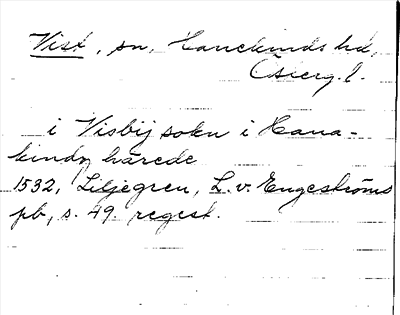 Vist, sn, Hanekinds hd,
Östergl.
i Visbij sokn i Hana-
kindz härede
1532, Liljegren, L. v. Engeströms
pb, s. 49. regest.